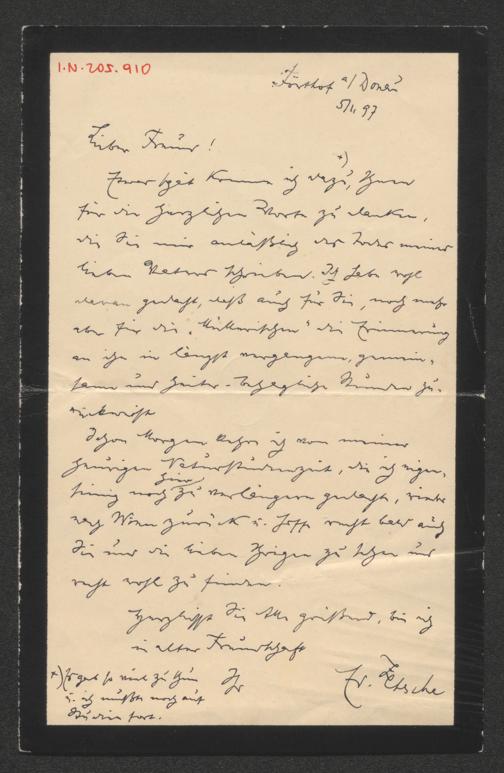 I.N. 205.910
Förthof a/ Donau
5/11 97
Lieber Freund!
Zwar spät komme ich dazu, +) Ihnen
für die herzlichen Worte zu danken,
die Sie mir anläßlich des Todes meines
lieben Vaters schrieben. Ich habe wohl
daran gedacht, daß auch für Sie, noch mehr
aber für die die Erinnerung
an ihn in längst vergangene, gemein-
same und heiter-behagliche Stunden zu-
rückreicht
Schon Morgen kehre ich von meiner
heurigen Naturstudienzeit, die ich eigen-
sinnig noch hier zu verlängern gedachte, wieder
nach Wien zurück u. hoffe recht bald auch
Sie und die lieben Ihrigen zu sehen und
recht wohl zu finden.
Herzlichst Sie Alle grüßend, bin ich
in alter Freundschaft
Ihr
+) Es gab so viel zu thun
u. ich mußte noch auf
Studien fort.